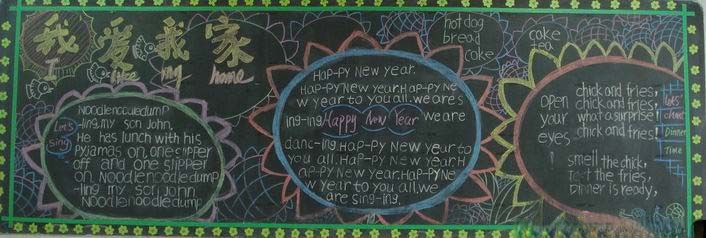 我爱我家
I like my home
Let's
Sing
Noodlenoodledump
-ling,my son John,
He has lunch with his
Pyjamas on, one slipper
off and one slipper
on. Noodlenoodledump
-ling my son John
Noodlenoodledump
Hap-py New year.
Hap-py New year.Hap-py Ne
w year to you all.we are s
ing-ing.Happy New Year we are
danc-ing.Hap-py New year to
you all.Hap-py New year.H
ap-py New year.Hap-py Ne
w year to you all.we
are sing-ing.
hot dog
bread
cake
cake
tea
open
your
eyes
!
chick and fries,
chick and fries,
what a surprise!
chick and fries!
smell the chick,
Test the fries,
Dinner is ready,
Let's
chant
Dinner
Time